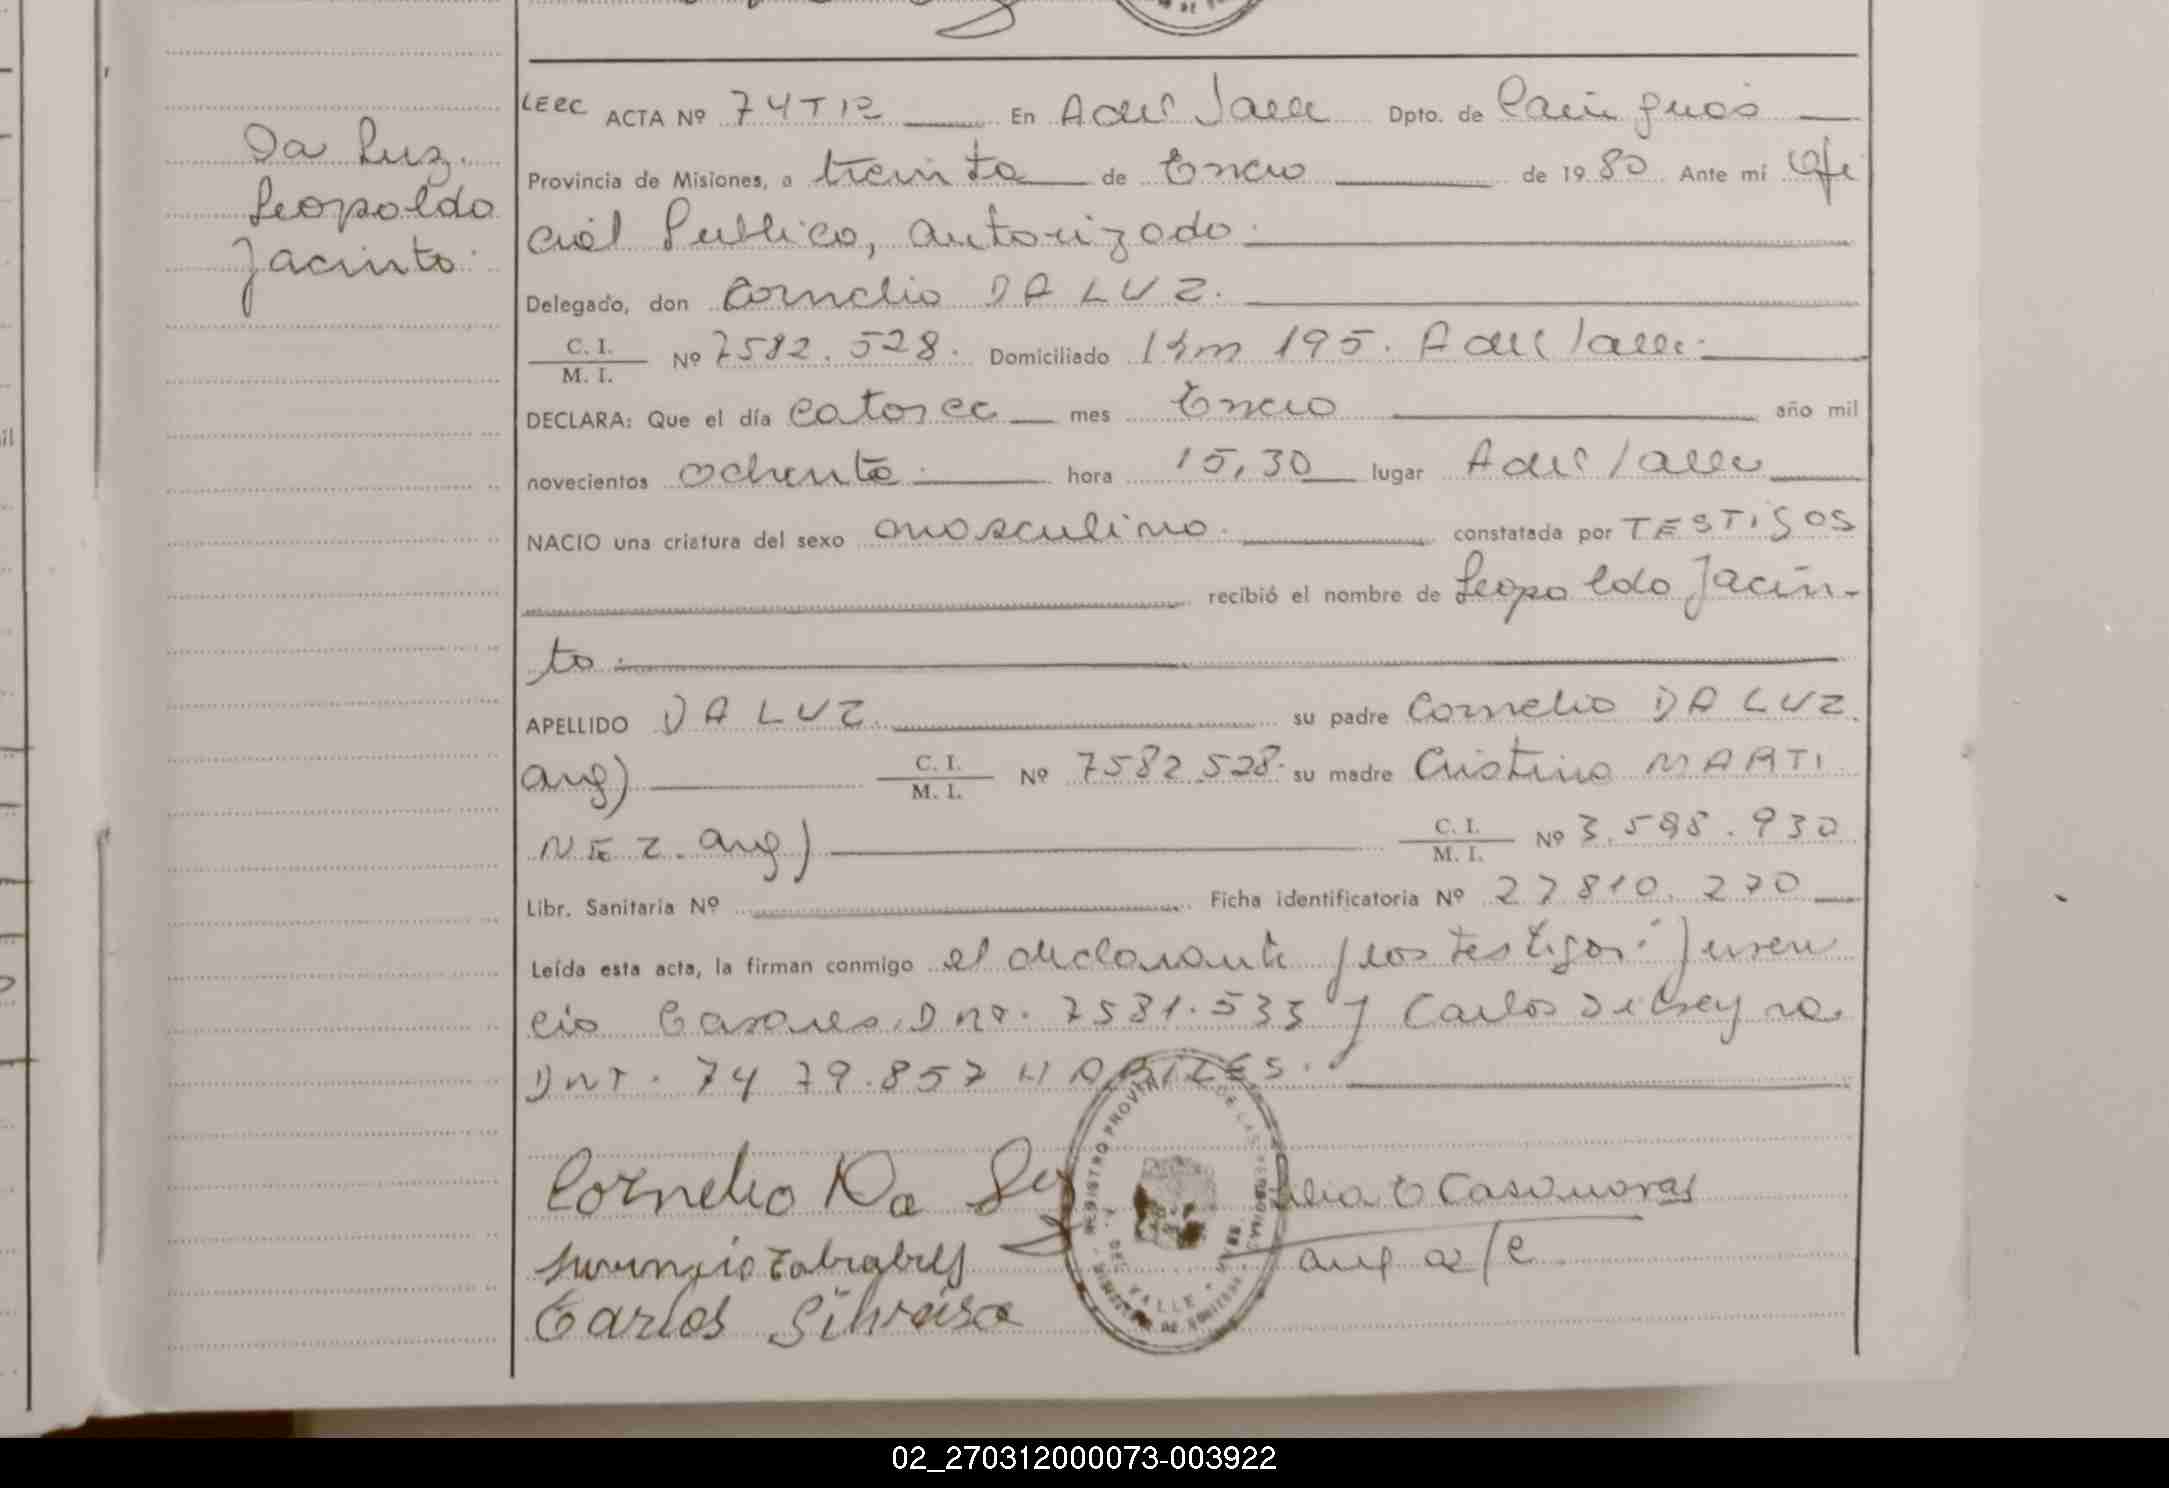 Da Luz.
Leopoldo
Jacinto.
LERC ACTA Nº 74 T 1R En A del Valle Dpto. de Cainguas
Provincia de Misiones, a treinta de Enero de 1980 Ante mí Ofi
cial Publico, autorizado.
Delegado, don Cornelio DA LUZ.
C. I. / M. I. Nº 7582.528. Domiciliado Km 195. A del Valle.
DECLARA: Que el día catorce mes Enero año mil
novecientos ochenta. hora 15,30 lugar A del Valle
NACIO una criatura del sexo masculino. constatada por TESTIGOS
recibió el nombre de Leopoldo Jacin-
to.
APELLIDO DA LUZ. su padre Cornelio DA LUZ.
arg) C. I. / M. I. Nº 7582.528. su madre Cristina MARTI
NEZ. arg) C. I. / M. I. Nº 3.588.930
Libr. Sanitaria Nº Ficha identificatoria Nº 27810.270
Leída esta acta, la firman conmigo el declarante y los testigos: Juven
cio DNI. 7581.533 y Carlos
DNI. 7479.857 HABILES.
Cornelio Da Luz
Carlos Silveira
Casanovas
REGISTRO PROVINCIAL DE LAS PERSONAS
A. DEL VALLE
02_270312000073-003922